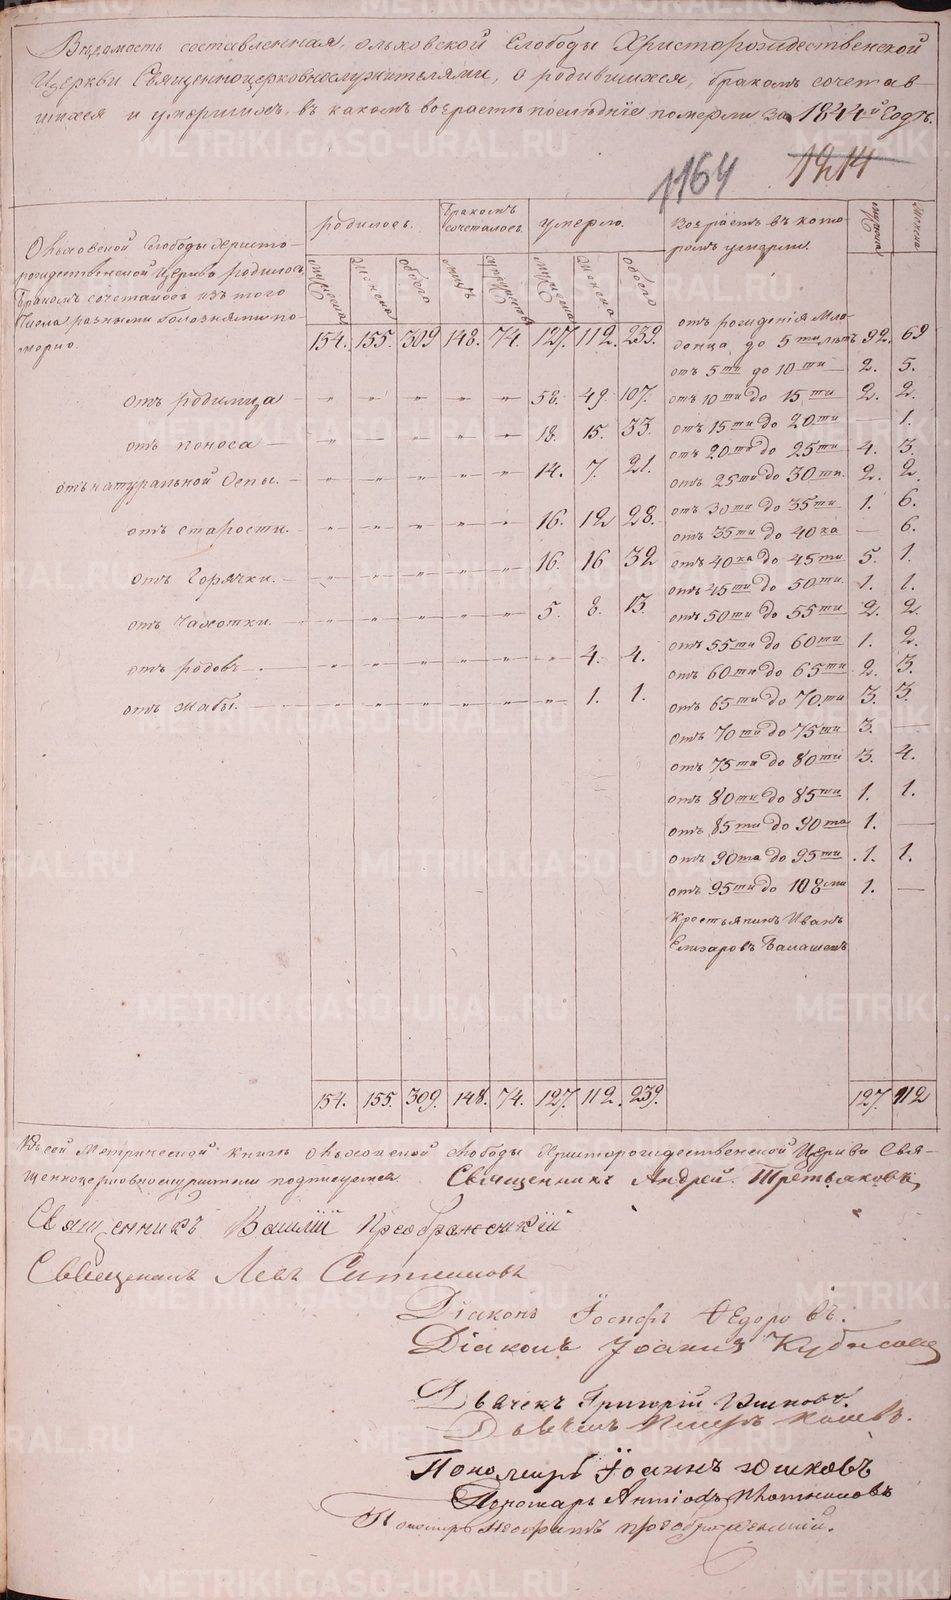 Ведомость составленная, Ольховской Слободы Христорождественской
Церкви Священноцерковнослужителями, о родившихся, бракомъ сочетав-
шихся и умершихъ, въ какомъ возрасте последніе померли за 1844й Годъ.
1164 1214
Ольховской Слободы Христо-
рождественской Церкви родилось,
Бракомъ сочеталось изъ того
Числа разными болезнями по-
мерло.
родилось. Бракомъ сочеталось. умерло. Возрастъ въ кото-
ромъ умерли.
мужеска женска обоего лицъ мужеска женска обоего
154. 155. 309 148. 74. 127. 112. 239.
отъ рожденія Мла-
денца до 5ти летъ 92. 69
отъ 5ти до 10ти 2. 5.
отъ родимца — „ „ „ „ „ 58. 49. 107.
отъ 10ти до 15ти 2. 2.
отъ 15ти до 20ти — 1.
отъ поноса — „ „ „ „ „ 18. 15. 33.
отъ 20ти до 25ти 4. 3.
отъ натуральной Оспы. „ „ „ „ „ 14. 7. 21.
отъ 25ти до 30ти. 2. 2.
отъ 30ти до 35ти 1. 6.
отъ старости. „ „ „ „ „ 16. 12 28.
отъ 35ти до 40ка — 6.
отъ Горячки. „ „ „ „ „ 16. 16 32
отъ 40ка до 45ти 5. 1.
отъ 45ти до 50ти. 1. 1.
отъ Чахотки. „ „ „ „ „ 5. 8. 13.
отъ 50ти до 55ти 2. 2.
отъ 55ти до 60ти 1. 2.
отъ родовъ. „ „ „ „ „ „ 4. 4.
отъ 60ти до 65ти 2. 3.
отъ жабы. „ „ „ „ „ „ 1. 1.
отъ 65ти до 70ти 3. 3.
отъ 70ти до 75ти 3. —
отъ 75ти до 80ти 3. 4.
отъ 80ти до 85ти 1. 1.
отъ 85ти до 90та 1. —
отъ 90та до 95ти 1. 1.
отъ 95ти до 108ми 1. —
Крестьянинъ Иванъ
Елизаровъ
154. 155. 309. 148. 74. 127. 112. 239. 127. 112
Къ сей Метрической книге Ольховской Слободы Христорождественской Церкви Свя-
щенноцерковнослужители подписуемся. Священникъ Андрей Третьяковъ
Священникъ Василій Преображенскій
Священникъ Левъ
Діаконъ Іосифъ Федоровъ.
Діаконъ Іоаннъ
Дьячекъ Григорій
Дьячекъ Петръ
Пономарь Іоаннъ Юшковъ
Пономарь
Пономарь Неофитъ Преображенскій.
METRIKI.GASO-URAL.RU